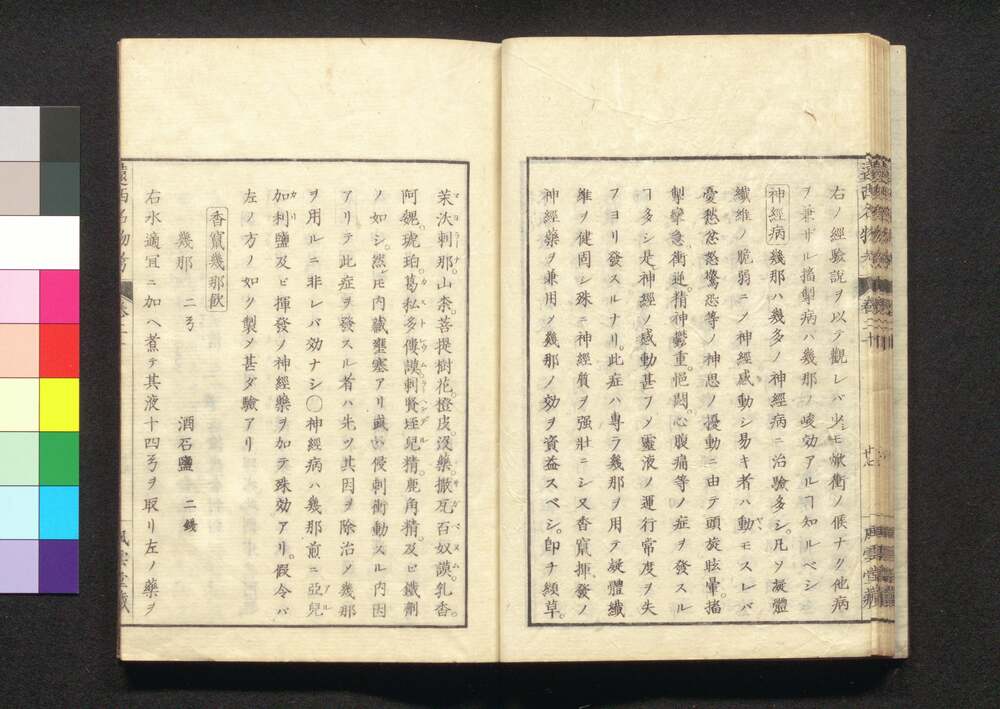 右ノ經驗說ヲ以テ觀レバ少モ焮衝ノ候ナク他病
ヲ兼ザル搐掣病ハ幾那ノ峻效アルヿ知ルベシ
神經病 幾那ハ幾多ノ神經病ニ治驗多シ。凡ソ凝體
纖維ノ脆弱ニノ神經感動シ易キ者ハ動モスレバ
憂愁忿怒驚恐等ノ神思ノ擾動ニ由テ頭旋眩暈。搐
掣攣急。衝逆。精神鬱重。悒悶。心腹痛等ノ症ヲ發スル
ヿ多シ是神經ノ感動甚フノ靈液ノ運行常度ヲ失
フヨリ發スルナリ。此症ハ專ラ幾那ヲ用テ凝體纖
維ヲ健固シ殊ニ神經質ヲ強壯ニシ又香竄揮發ノ
神經藥ヲ兼用ノ幾那ノ効ヲ資益スベシ。卽チ纈草。
遠西名物考 卷二十
廿七
風雲堂藏
茉沃刺那。山柰。菩提樹花。橙皮。沒藥。撒瓦百奴謨。乳香。
マヨラナ
ガバヌム
阿魏。琥珀。葛私多僂謨。刺賢垤兒精。鹿角精。及ヒ鐵劑
カストリウム
ラヘンデル
ノ如シ。然モ內臟壅塞アリ或ハ侵刺衝動スル內因
アリテ此症ヲ發スル者ハ先ツ其因ヲ除治ノ幾那
ヲ用ルニ非レバ効ナシ〇神經病ハ幾那煎ニ亞兒
アル
加利鹽及ヒ揮發ノ神經藥ヲ加テ殊效アリ。假令バ
カリ
左ノ方ノ如ク製メ甚ダ驗アリ
香竄幾那飲
幾那 二
酒石鹽 二錢
右水適宜ニ加ヘ煮テ其液十四ヲ取リ左ノ藥ヲ
遠西名物考 卷二十
風雲堂藏